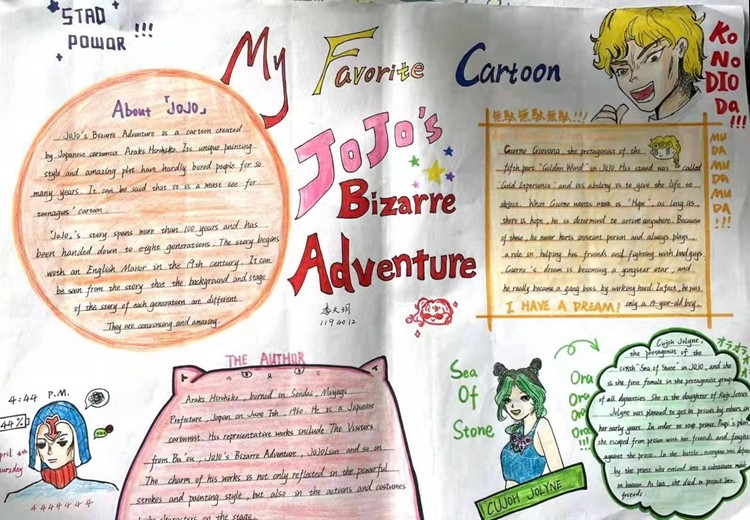 STAD
POWAR !!!
My Favorite Cartoon
JoJo's
Bizarre
Adventure
李天玥
1194012
Ko
No
DIO
Da
!!!
About「JoJo」
JoJo's Bizarre Adventure is a cartoon created
by Japanese cartoonist Araks Hirohiko. Its unique painting
style and amazing plot have hardly bored people for so
many years. It can be said that it is a must see for
teenagers' cartoon.
"JoJo" s story spans more than 100 years and has
been handed down to eight generations. The story begins
with an English Manor in the 19th century. It can
be seen from the story that the background and stage
of the story of each generation are different.
They are convincing and amazing.
無駄無駄無駄!!!
MU
DA
MU
DA
MU
DA
!!!
Giorno Giovanna, the protagonist of the
fifth part "Golden Wind" in JOJO. His stand was called
Gold Experience" and its ability is to give the life to
object. What Giorno wants most is "Hope", as long as
there is hope, he is determined to arrive anywhere. Because
of this, he never hurts innocent person and always plays
a role in helping his friends and fighting with bad guys.
Giorno's dream is becoming a gangster star, and
he really became a gang boss by working hard. In fact, he was
I HAVE A DREAM! only a 15-year-old boy.
THE AUTHOR
Araks Hirohiko, burned in Sendai, Miyagi
Prefecture, Japan on June 7th, 1960. He is a Japanese
cartoonist. His representative works include The Visitors
from Ba'ou, JoJo's Bizarre Adventure, JoJoLion and so on
The charm of his works is not only reflected in the powerful
strokes and painting style, but also in the actions and costumes
characters on the stage.
4:44 P.M.
44%
April 4th
Thursday
444444
Sea
Of
Stone
Ora
Ora
Ora
Ora
!!!
CUJOH JOLYNE
オラオラ
Cujoh Jolyne,
the protagonist of the
sixth "Sea of Stone" in JOJO, and she
is the first female in the protagonist group
of all dynasties. She is the daughter of Kujo Jotaro.
Jolyne was planned to get in prison by others in
her early years. In order to stop priest Pucci's plan,
she escaped from prison with her friends and fought
against the priest. In the battle, everyone was defeated
by the priest who evolved into a substitute made
in heaven. At last, she died to protect her
friends.